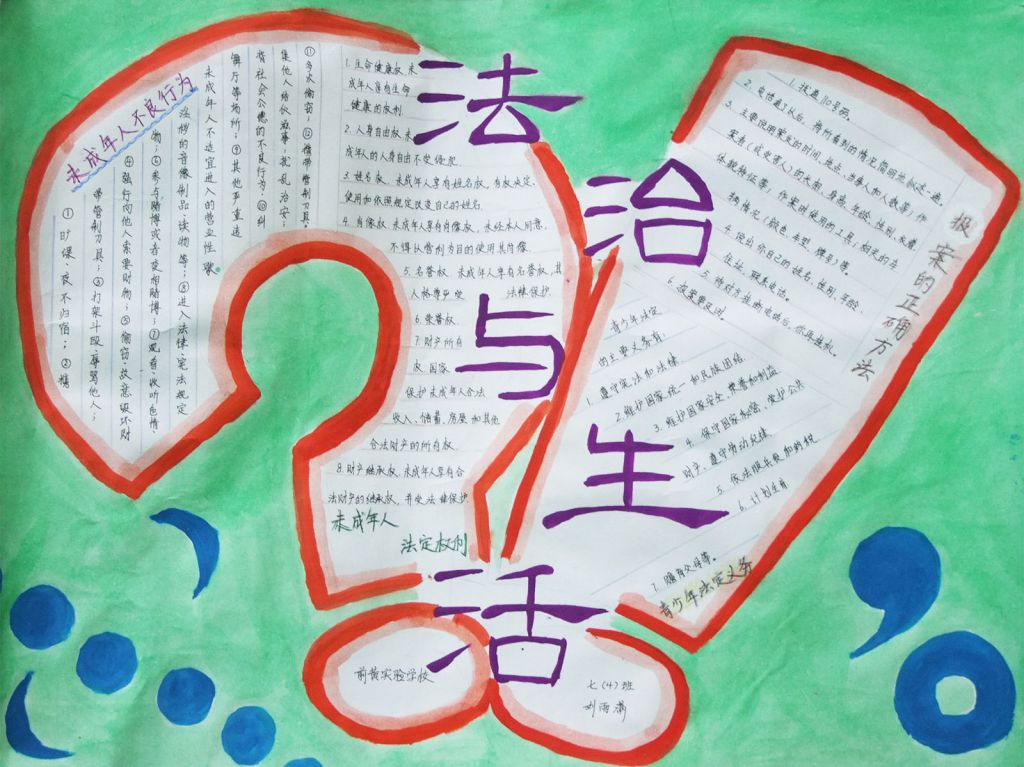 法治与生活
未成年人不良行为
①旷课、夜不归宿；②携
带管制刀具；③打架斗殴、辱骂他人；
④强行向他人索要财物；⑤偷窃、故意毁坏财
物；⑥参与赌博或者变相赌博；⑦观看、收听色情、
淫秽的音像制品、读物等；⑧进入法律、宪法规定
未成年人不适宜进入的营业性歌
舞厅等场所；⑨其他严重违
背社会公德的不良行为；⑩纠
集他人结伙滋事，扰乱治安；
⑪多次偷窃；⑫携带管制刀具。
1. 生命健康权，未
成年人享有生命
健康的权利.
2. 人身自由权，未
成年人的人身自由不受侵犯
3. 姓名权，未成年人享有姓名权，有权决定、
使用和依照规定改变自己的姓名
4. 肖像权，未成年人享有肖像权，未经本人同意，
不得以营利为目的使用其肖像
5. 名誉权，未成年人享有名誉权，其
人格尊严受 法律保护.
6. 荣誉权.
7. 财产所有
权 国家
保护未成年人合法
收入、储蓄、房屋和其他
合法财产的所有权.
8. 财产继承权，未成年人享有合
法财产的继承权，并受法律保护
未成年人
法定权利
1. 拨通110号码.
2. 发信通3次后，将所看到的情况简明地叙述一遍.
3. 主要说明案发的时间、地点、当事人和人数等）作
案者（或受害人）的衣则、身高、年龄、性别、衣着、
体貌特征等；作案时使用的工具；如无的车
辆情况（颜色、车型、牌号）等.
4. 说出你自己的姓名、性别、年龄、
住址、联系电话.
5. 待对方挂断电话后，你再挂机.
6. 报案要及时.
报案的正确方法
青少年法定
的主要义务有：
1. 遵守宪法和法律
2. 维护国家统一和民族团结
3. 维护国家安全、荣誉和利益
4. 保守国家秘密、爱护公共
财产、遵守劳动纪律
5. 依法服兵役和纳税
6. 计划生育
7. 赡养父母等。
青少年法定义务
前黄实验学校
七（4）班
刘雨